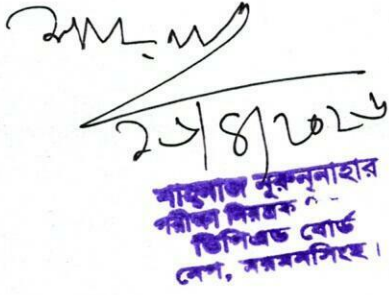 ২৬/৪/২০২৬
শাহনাজ নূরুন্নাহার
পরীক্ষা নিয়ন্ত্রক
ডিপিএড বোর্ড
নেপ, ময়মনসিংহ।